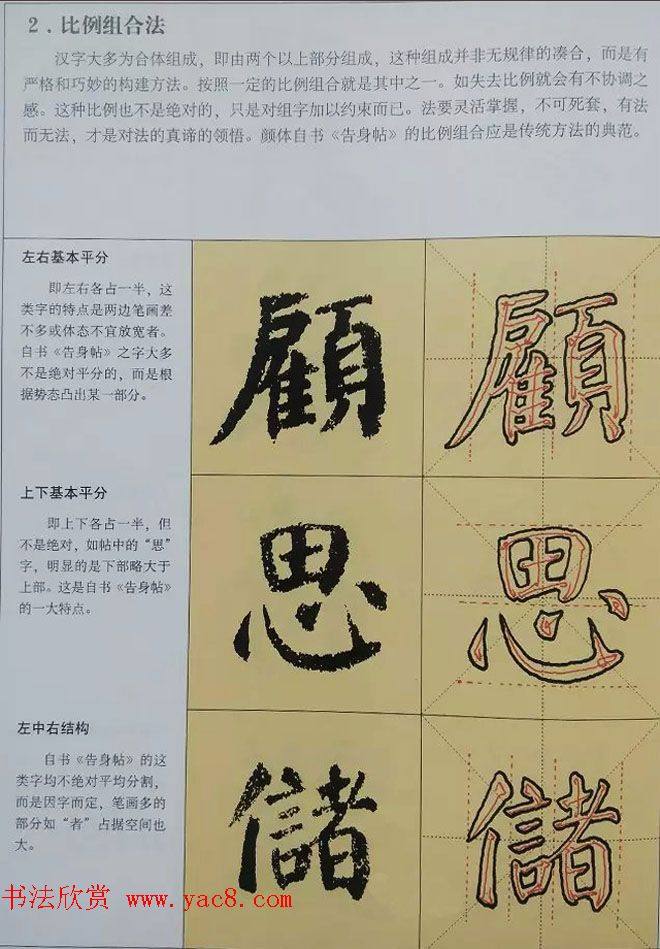 2．比例组合法
汉字大多为合体组成，即由两个以上部分组成，这种组成并非无规律的凑合，而是有
严格和巧妙的构建方法。按照一定的比例组合就是其中之一。如失去比例就会有不协调之
感。这种比例也不是绝对的，只是对组字加以约束而已。法要灵活掌握，不可死套，有法
而无法，才是对法的真谛的领悟。颜体自书《告身帖》的比例组合应是传统方法的典范。
左右基本平分
即左右各占一半，这
类字的特点是两边笔画差
不多或体态不宜放宽者。
自书《告身帖》之字大多
不是绝对平分的，而是根
据势态凸出某一部分。
顧
顧
上下基本平分
即上下各占一半，但
不是绝对，如帖中的“思”
字，明显的是下部略大于
上部。这是自书《告身帖》
的一大特点。
思
思
左中右结构
自书《告身帖》的这
类字均不绝对平均分割，
而是因字而定，笔画多的
部分如“者”占据空间也
大。
儲
儲
书法欣赏 www.yac8.com